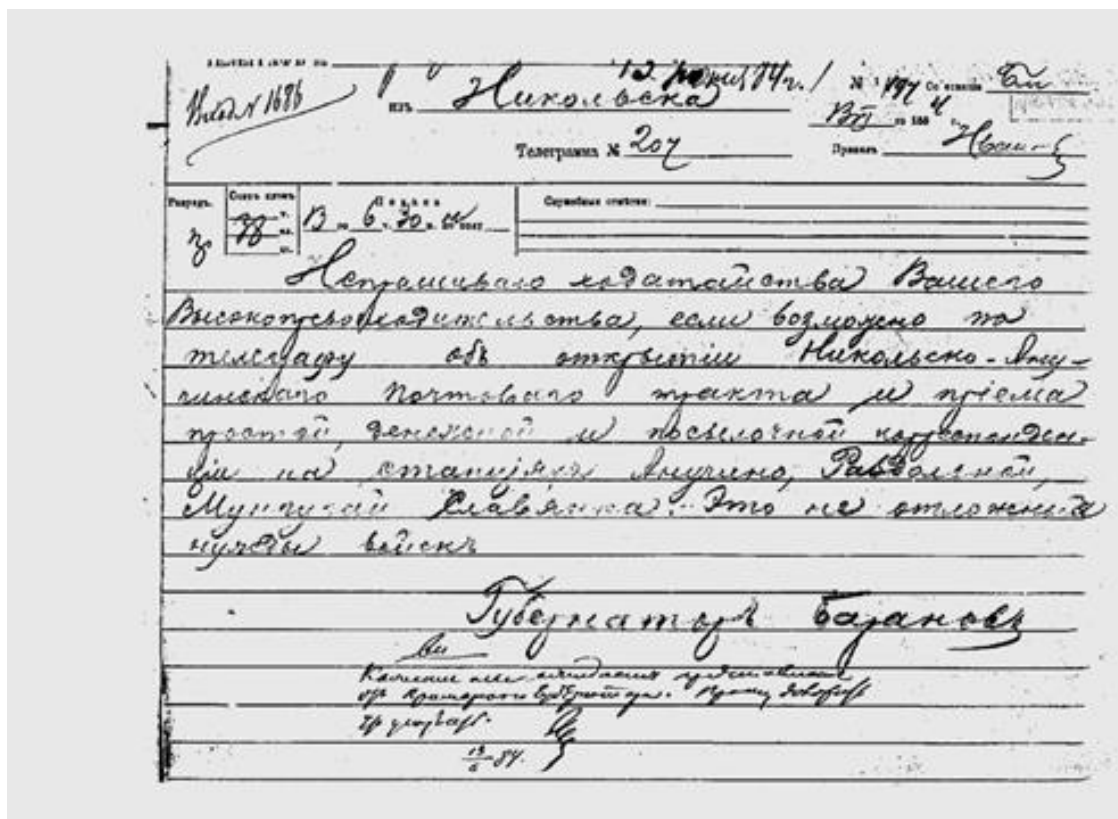 Вход № 1686
13 июня 84 г.
изъ Никольска
№ 197 Со станціи
по 188 4 г.
Телеграмма № 207
Принялъ
Разрядъ.
Счетъ словъ
Подача
Служебныя отмѣтки:
13 го 6 ч. 30 м. по полу
Испрашиваю ходатайства Вашего
Высокопревосходительства, если возможно по
телеграфу объ открытіи Никольско-Ану-
чинскаго почтоваго тракта и пріема
простой, денежной и посылочной корреспонден-
ціи на станціяхъ Анучино, Раздольной,
Мунгугай Славянка. Это не отложныя
нужды войскъ
Губернаторъ Барановъ
13/6 84.